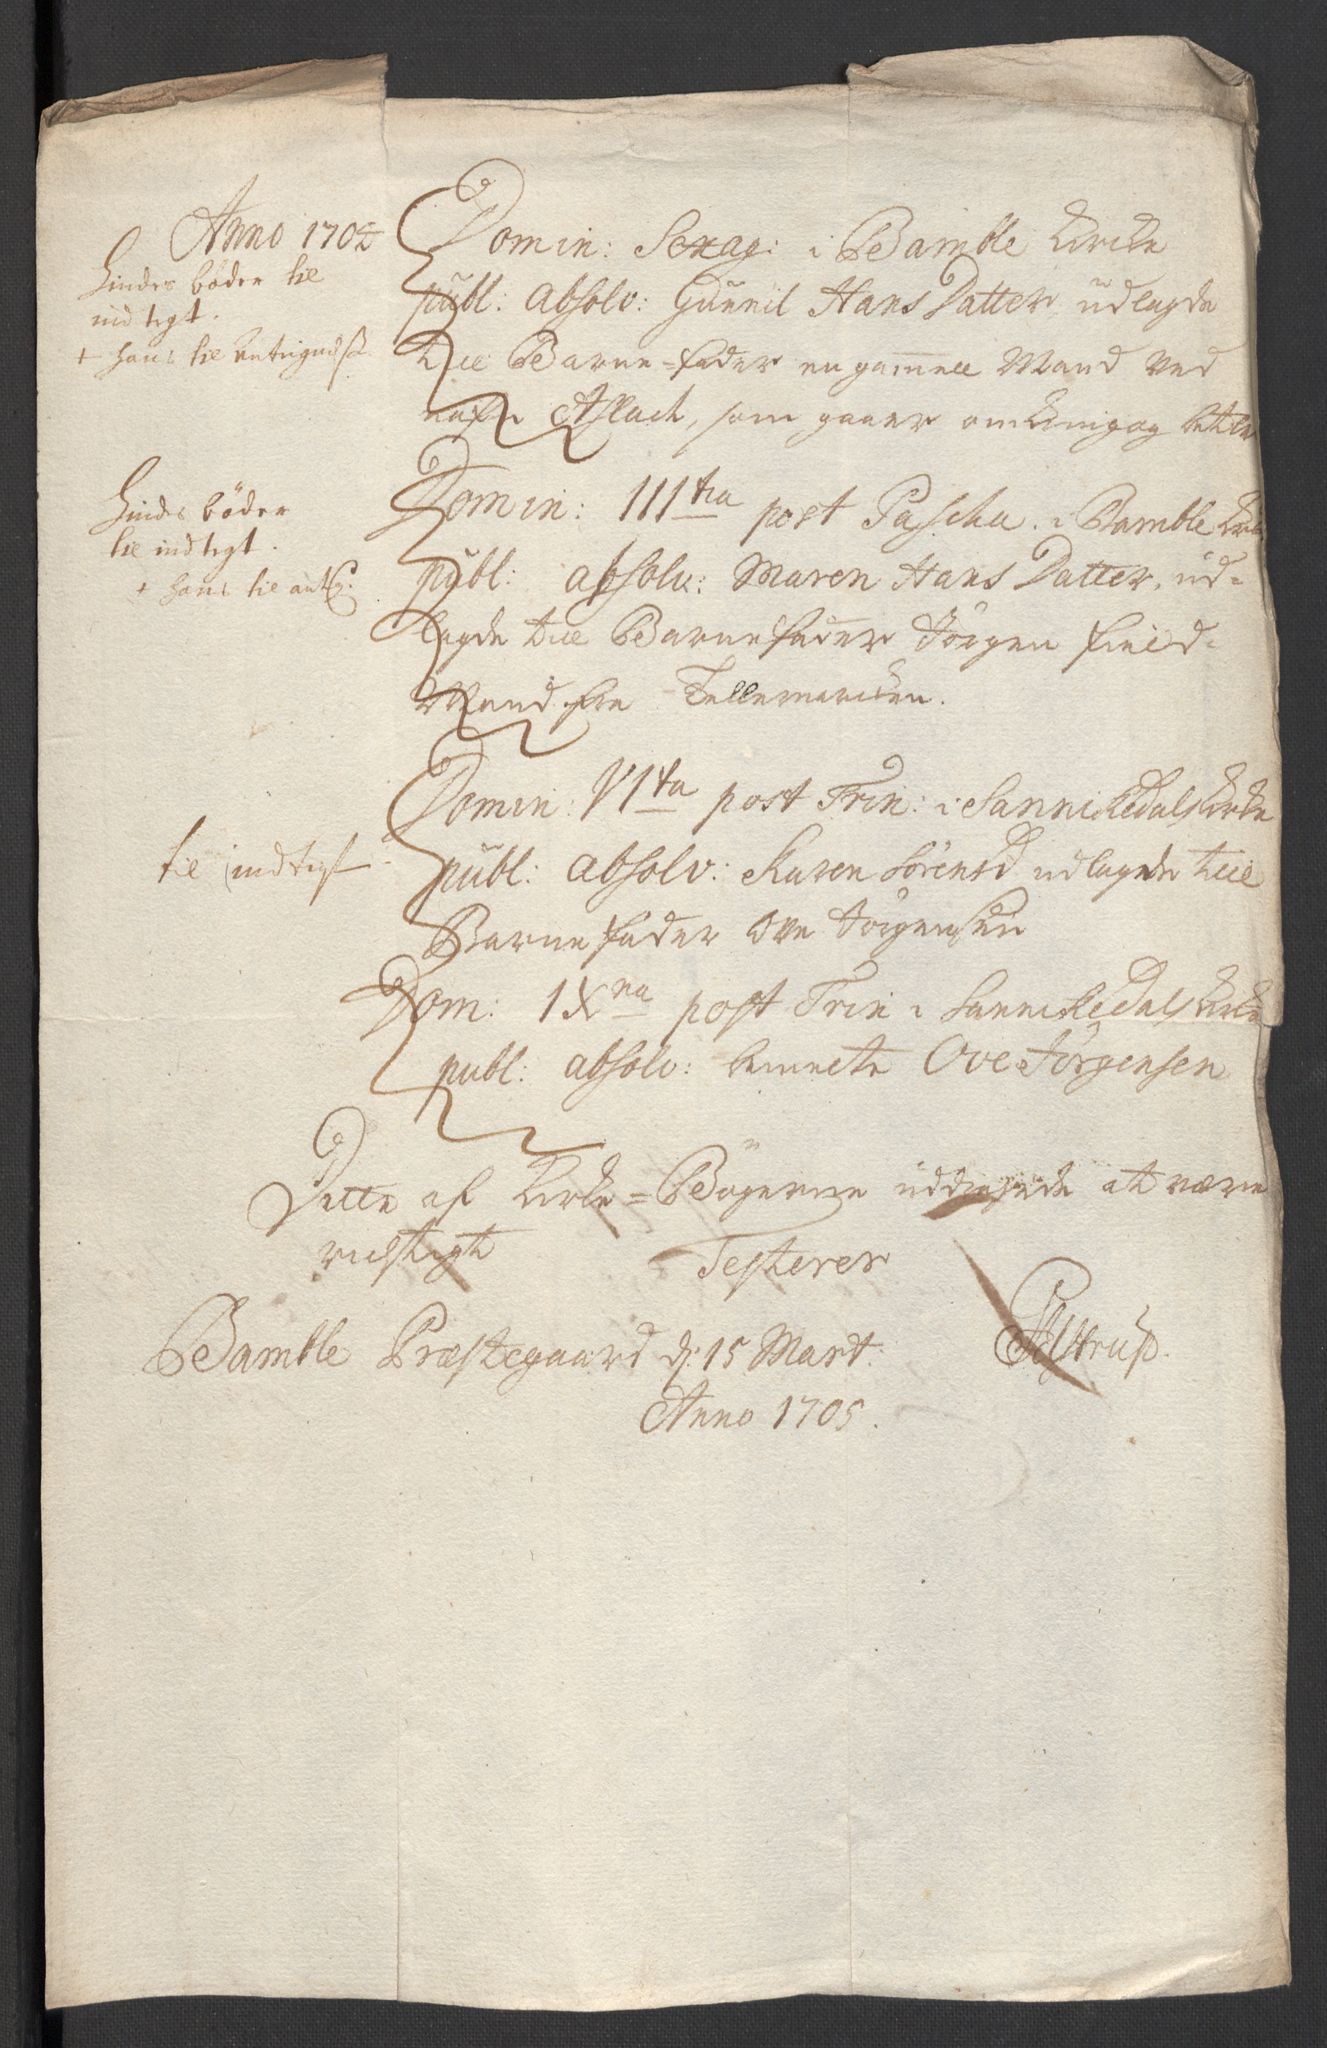 Anno 1704
Hindes bøder til
indtegt.
+ hans til Antegnelse
Domin: Sexag: i Bamble Kircke
publ: absolv: Gunnil Hans Datter, udlagde
till Barne-fader en gammell Mand ved
nafn Aslach, som gaaer omkring og betler
Hindes bøder
til indtegt.
+ hans til ant:
Domin: III tia post Pascha. i Bamble Kirke
publ: absolv: Maren Hans Datter, ud-
lagde till Barnefader Jörgen field-
Mand fra Tellemarcken.
til indtegt
Domin: VI ta post Trin: i Sannikedals Kirke
publ: absolv: Karen Sörensd udlagde till
Barnefader Ove Jörgensen
Dom: IX na post Trin i Sannikedals Kirke
publ: absolv: bemelte Ove Jörgensen
Dette af Kirke-Bögerne uddragede at være
richtigt Testerer
Bamble Præstegaard d: 15 Mart:
Anno 1705.